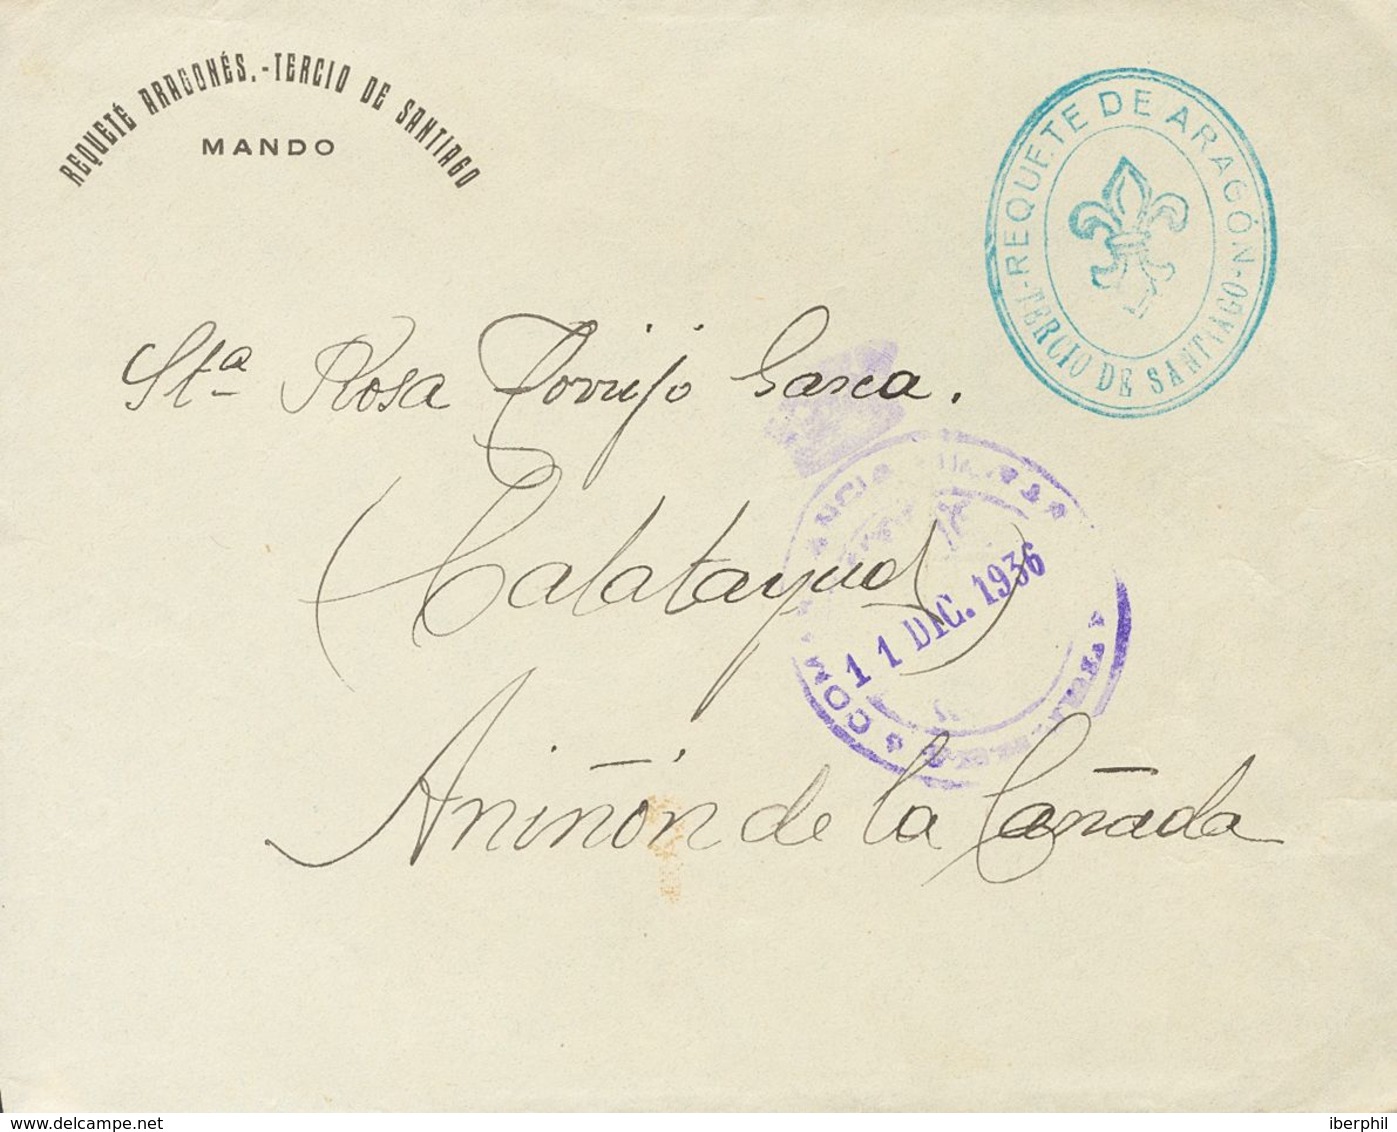 REQUETÉ ARAGONÉS.-TERCIO DE SANTIAGO
MANDO
REQUETE DE ARAGÓN
-TERCIO DE SANTIAGO-
Sta Rosa Torrijo Gasca.
(Calatayud)
11 DIC. 1936
Aniñón de la Cañada
www.delcampe.net
iberphil